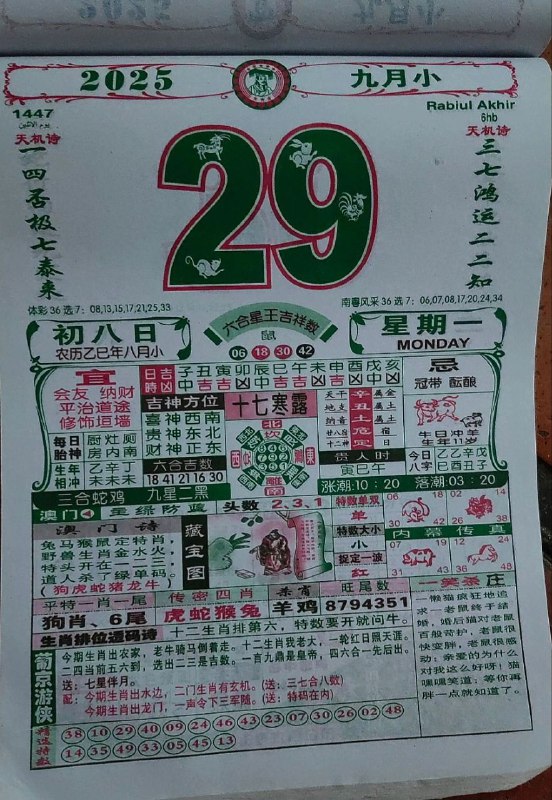 2025
九月小
1447
Rabiul Akhir
6hb
天机诗
天机诗
一四否极七泰来
三七鸿运二二知
29
体彩36选7：08,13,15,17,21,25,33
南粤风采36选7：06,07,08,17,20,24,34
初八日
农历乙巳年八月小
六合星王吉祥数
鼠
06 18 30 42
星期一
MONDAY
宜
会友 纳财
平治道途
修饰垣墙
日时 吉凶
子丑寅卯辰巳午未申酉戌亥
忌
冠带 酝酿
吉神方位
喜神西南
贵神东北
财神正东
十七寒露
天干 辛 属金
地支 丑 属土
纳音 土
廿八宿 危 宿
十二神 定 日
牛日冲羊
生年11岁
每日胎神
厨灶厕
房内南
生年相冲
乙辛丁
未未未
六合吉数
18 41 21 16 30
北
坎
西
东
南
贵人时
寅巳午
今日八字
三合蛇鸡
九星二黑
涨潮：10：20
落潮：03：20
澳门
头数 2.3.1
澳门诗
兔马猴鼠定特肖，
野兽生肖金水火，
特头开在一二三，
道人杀了绿单码。
(狗虎蛇猪龙牛)
藏宝图
特数单双
单
特数大小
小
捉定一波
红
内幕传真
平特一肖一尾
狗肖、6尾
传密四肖
虎蛇猴兔
杀肖
羊鸡
旺尾数
8794351
一笑茶庄
一懒猫疯狂地追求一老鼠终于结婚，婚后猫对老鼠百般苛护，老鼠很快变胖，老鼠很感动：亲爱的为什么对我这么好呀！猫嘿嘿笑道：等你再胖一点就知道了。
生肖排位透码诗
十二生肖排第六，特数要开就问牛。
葡京游侠
今期生肖出农家，老牛骑马倒着走。十二生肖我老大，一轮红日照天涯。
二四当前五六到，选出二三是吉数。一言九鼎是皇帝，四六合一先后出。
送：七星伴月。
配：今期生肖出水边，二门生肖有玄机。(送：三七合八数)
今期生肖出龙门，一声令下三军随。(送：特码在内)
精选特数
38 10 29 40 09 24 46 43 23 07 30 26 02 48
14 35 49 33 05 45 13